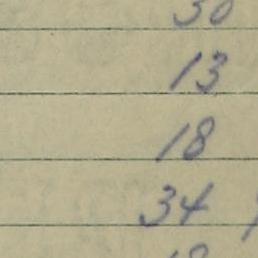 30
13
18
34